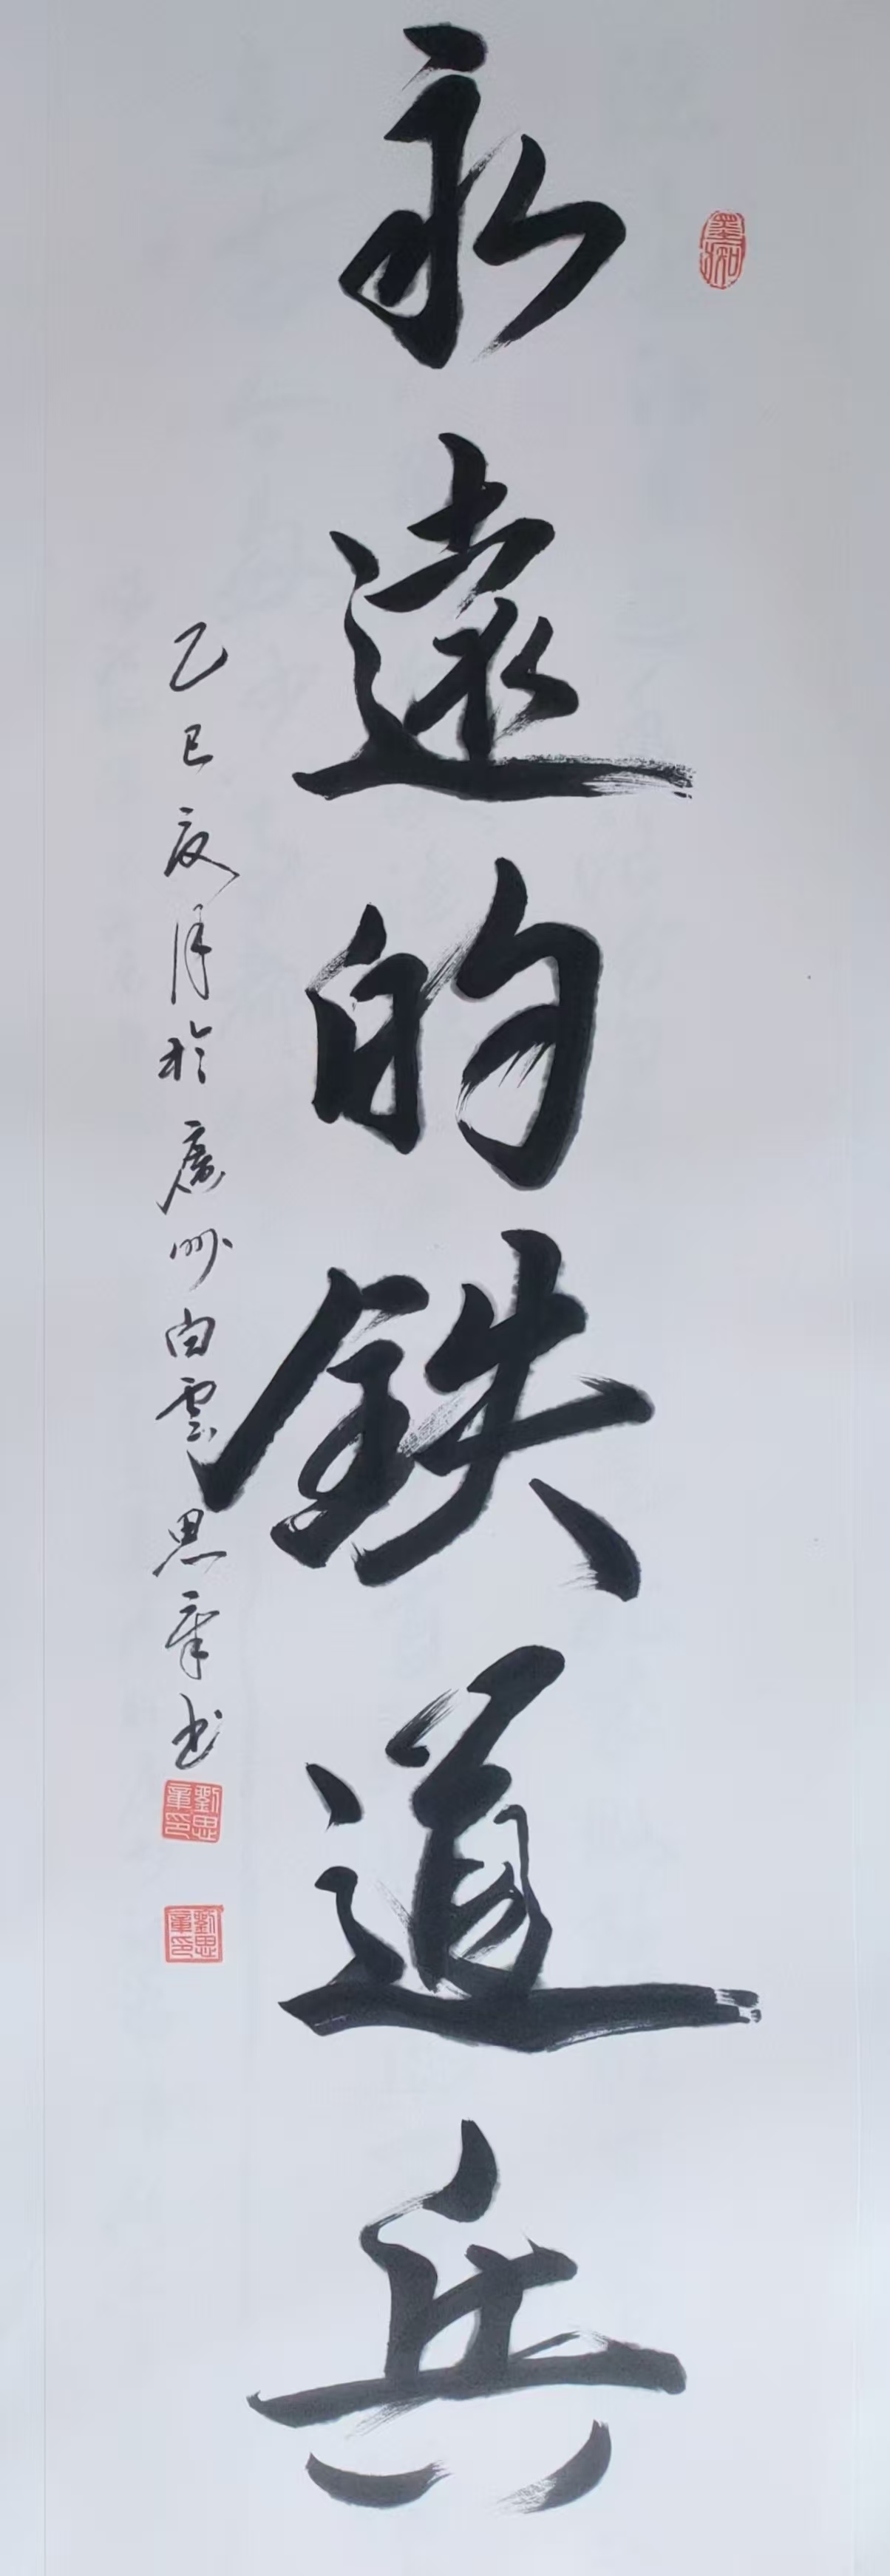 永遠的鉄道兵
乙巳夜月於廣州白雲思章书
劉思章印
劉思章印